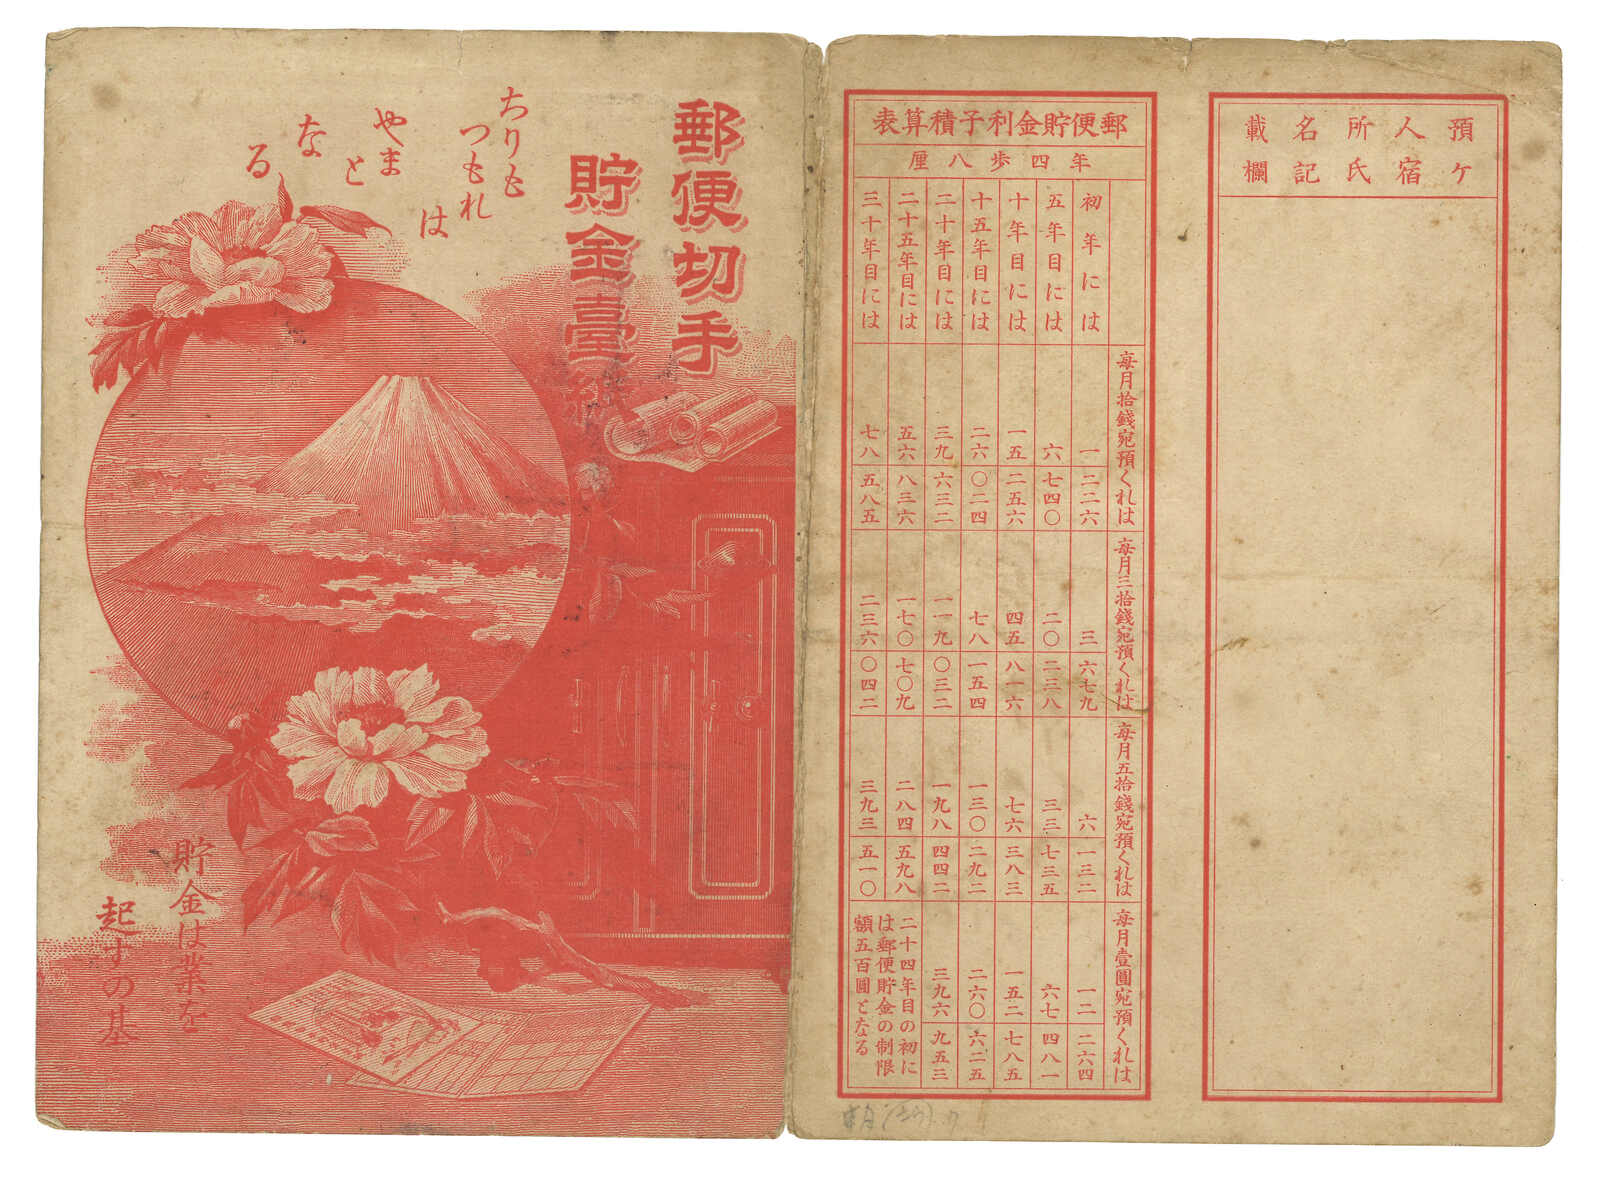 郵便切手
貯金臺紙
ちりも
つもれ
は
やま
と
なる
貯金は業を
起すの基
郵便貯金利子積算表
年四歩八厘
初年には
五年目には
十年目には
十五年目には
二十年目には
二十五年目には
三十年目には
毎月拾錢宛預くれは
一 二二六
六 七四〇
一五 二五六
二六 〇二四
三九 六三二
五六 八三六
七八 五八五
毎月三拾錢宛預くれは
三 六七九
二〇 二三八
四五 八一六
七八 一五四
一一九 〇三二
一七〇 七〇九
二三六 〇四二
毎月五拾錢宛預くれは
六 一三二
三三 七三五
七六 三八三
一三〇 二九二
一九八 四四二
二八四 五九八
三九三 五一〇
毎月壹圓宛預くれは
一二 二六四
六七 四八一
一五二 七八五
二六〇 六二五
三九六 九五三
二十四年目の初に
は郵便貯金の制限
額五百圓となる
預ケ
人宿
所氏
名記
載欄